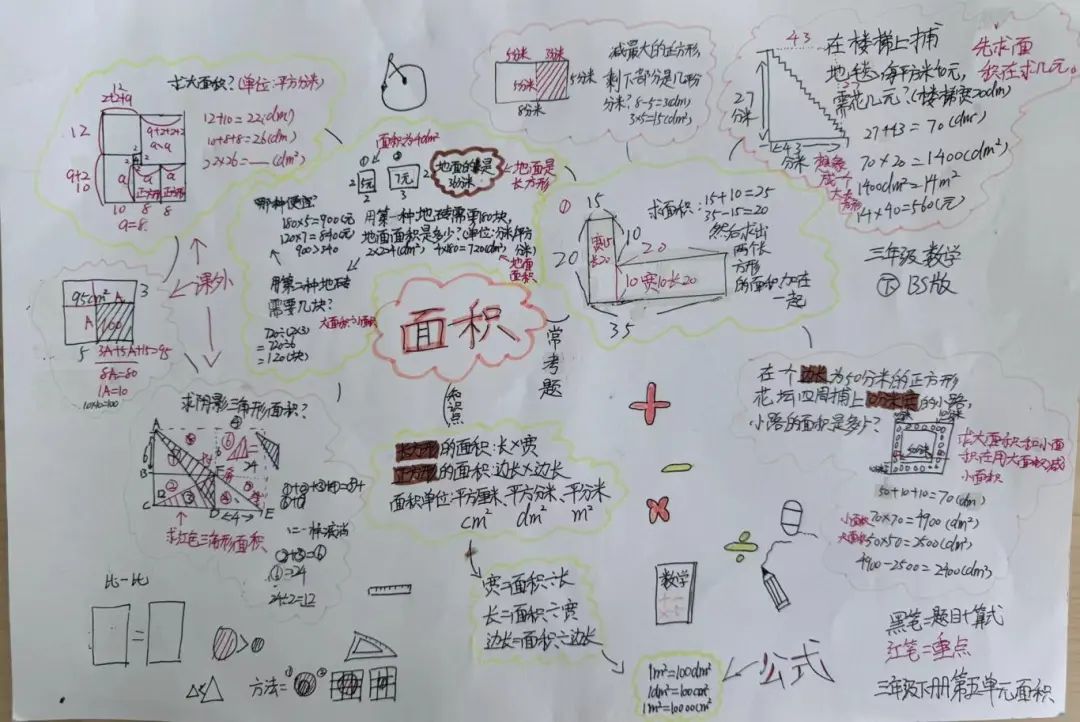 求大面积?(单位:平方分米)
12+10=22(dm)
10+8+8=26(dm)
22×26=—(dm²)
12
9+2
10
10 8 8
a=8
5分米 3分米
5分米 5分米
8分米
减最大的正方形
剩下部分是几平分
分米? 8-5=3(dm)
3×5=15(dm²)
43
27
分米
43
分米
在楼梯上捕
地毯,每平方米40元,
需花几元?(楼梯宽20dm)
先求面
积在求几元。
27+43=70(dm)
70×20=1400(dm²)
1400dm²=14m²
14×40=560(元)
三年级数学
下 BS版
面积为4dm²
① ②
2 5元
2
7元 2
3
地面的宽是
36分米
地面是
长方形
哪种便宜?
180×5=900(元)
120×7=840(元)
900>840
用第一种地砖需要180块,
地面面积是多少?(单位:分米/平分
分米)
2×2=4(dm²) 4×180=720(dm²)
地面
面积
用第二种地砖
需要几块?
大面积÷小面积
720÷(2×3)
=720÷6
=120(块)
①
15
20
10
20
宽15
长20
10宽10长20
35
求面积:15+10=25
35-15=20
然后求出
两个长
方形
的面积加在
一起
课外
95cm² A 3
A 100
5
3A+5A+15=95
8A=80
1A=10
10×10=100
面积
常考题
知识点
求阴影三角形面积?
求红色三角形面积
②+③=⑥
①=24
24÷2=12
长方形的面积:长×宽
正方形的面积:边长×边长
面积单位:平方厘米、平方分米、平分米
cm² dm² m²
宽=面积÷长
长=面积÷宽
边长=面积÷边长
在个边长为50分米的正方形
花坛四周捕上10分米宽的小路,
小路的面积是多少?
求大面积和小面
积在用大面积减
小面积
50+10+10=70(dm)
小面积
大面积
70×70=4900(dm²)
50×50=2500(dm²)
4900-2500=2400(dm²)
比一比
方法=
数学
公式
1m²=100dm²
1dm²=100cm²
1m²=10000cm²
黑笔=题目+算式
红笔=重点
三年级下册第五单元面积